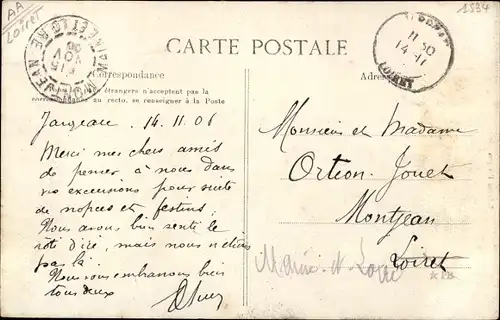 AA
Loiret
1534
MONTJEAN
MAINE ET LOIRE
11 30
14 11
LOIRET
CARTE POSTALE
Correspondance
étrangers n'acceptent pas la
correspondance au recto, se renseigner à la Poste
Jargeau 14.11.06
Merci mes chers amis
de penser à nous dans
vos excursions pour suite
de nopces et festins.
Nous avons bien senti le
rôti d'ici, mais nous n'étions
pas là.
Nous vous embrassons bien
tous deux
Monsieur et Madame
Ortion-Jouet
Montjean
Loiret
Maine-et-Loire